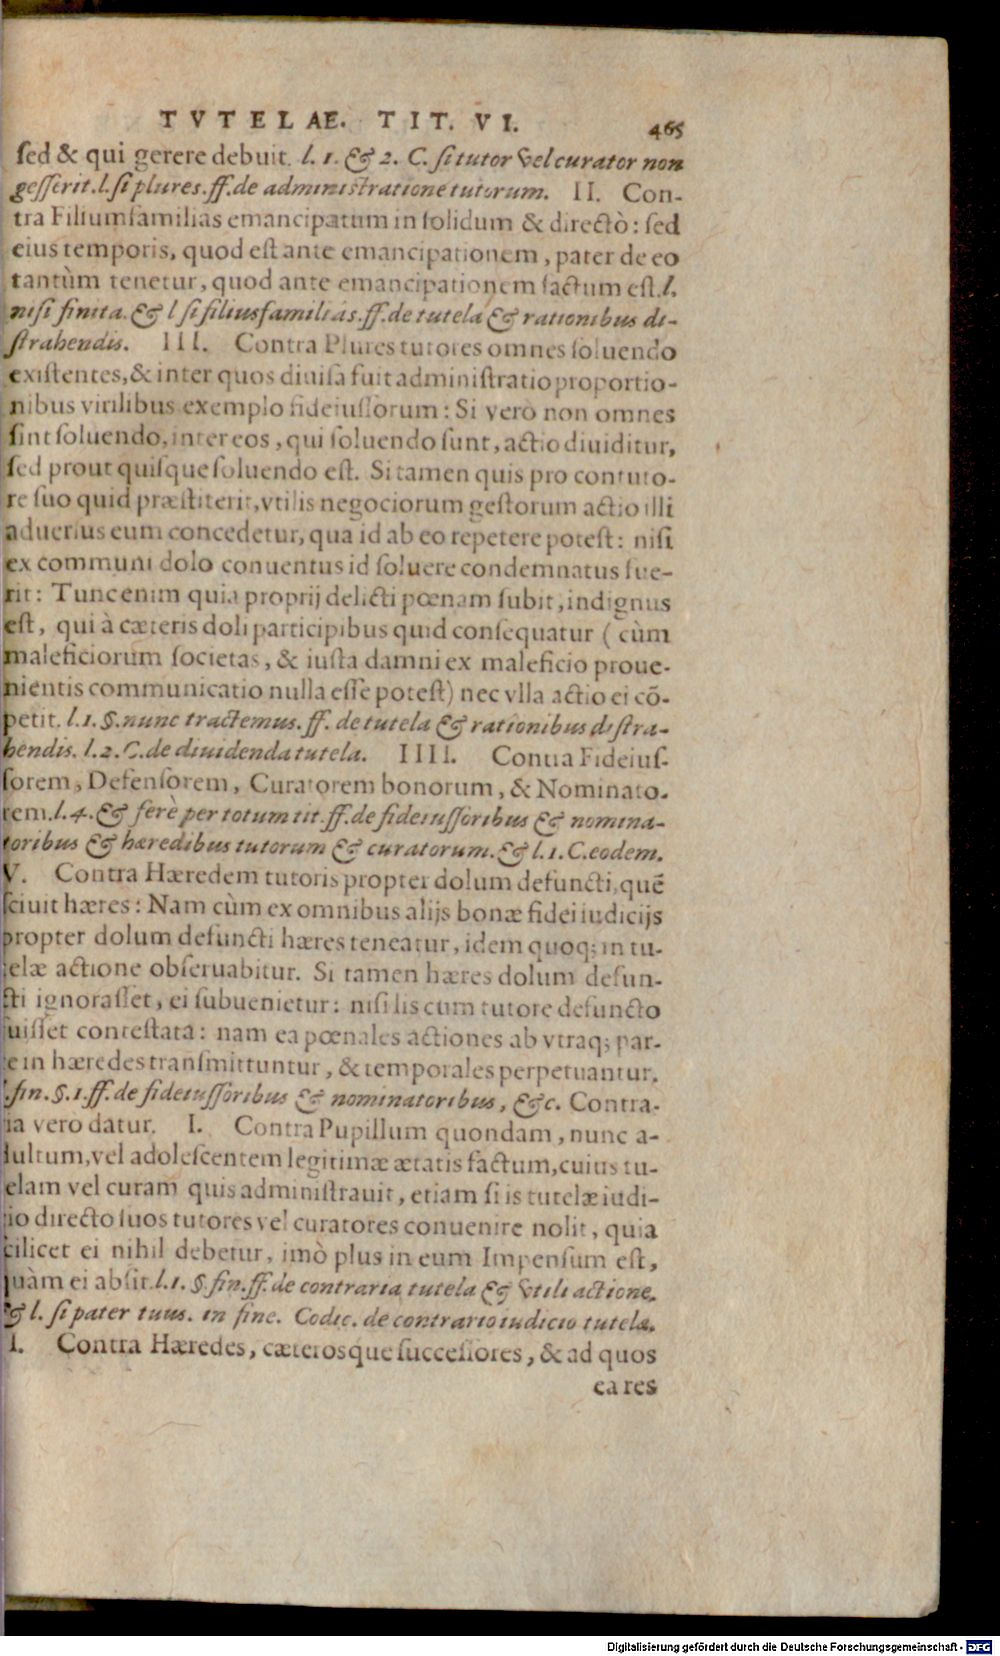 TVTELAE. TIT. VI. 465
ſed & qui gerere debuit. l. 1. & 2. C. ſi tutor vel curator non
geſſerit. l. ſi plures. ff. de adminiſtratione tutorum. II. Con-
tra Filiumfamilias emancipatum in ſolidum & directò: ſed
eius temporis, quod eſt ante emancipationem, pater de eo
tantùm tenetur, quod ante emancipationem factum eſt. l.
niſi finita. & l ſi filiusfamilias. ff. de tutela & rationibus di-
ſtrahendis. III. Contra Plures tutores omnes ſoluendo
exiſtentes, & inter quos diuiſa fuit adminiſtratio proportio-
nibus virilibus exemplo fideiuſſorum: Si vero non omnes
ſint ſoluendo, inter eos, qui ſoluendo ſunt, actio diuiditur,
ſed prout quiſque ſoluendo eſt. Si tamen quis pro contuto-
re ſuo quid præſtiterit, vtilis negociorum geſtorum actio illi
aduerſus eum concedetur, qua id ab eo repetere poteſt: niſi
ex communi dolo conuentus id ſoluere condemnatus fue-
rit: Tunc enim quia proprij delicti pœnam ſubit, indignus
eſt, qui à cæteris doli participibus quid conſequatur (cùm
maleficiorum ſocietas, & iuſta damni ex maleficio proue-
nientis communicatio nulla eſſe poteſt) nec vlla actio ei cō-
petit. l. 1. §. nunc tractemus. ff. de tutela & rationibus diſtra-
hendis. l. 2. C. de diuidenda tutela. IIII. Contra Fideiuſ-
ſorem, Defenſorem, Curatorem bonorum, & Nominato-
rem. l. 4. & ferè per totum tit. ff. de fideiuſſoribus & nomina-
toribus & hæredibus tutorum & curatorum. & l. 1. C. eodem.
V. Contra Hæredem tutoris propter dolum defuncti, quē
ſciuit hæres: Nam cùm ex omnibus alijs bonæ fidei iudicijs
propter dolum defuncti hæres teneatur, idem quoq; in tu-
elæ actione obſeruabitur. Si tamen hæres dolum defun-
cti ignoraſſet, ei ſubuenietur: niſi lis cum tutore defuncto
fuiſſet conteſtata: nam ea pœnales actiones ab vtraq; par-
e in hæredes tranſmittuntur, & temporales perpetuantur.
.fin. §. 1. ff. de fideiuſſoribus & nominatoribus, &c. Contra-
ia vero datur. I. Contra Pupillum quondam, nunc a-
dultum, vel adoleſcentem legitimæ ætatis factum, cuius tu-
elam vel curam quis adminiſtrauit, etiam ſi is tutelæ iudi-
io directo ſuos tutores vel curatores conuenire nolit, quia
cilicet ei nihil debetur, imò plus in eum Impenſum eſt,
quàm ei abſit. l. 1. §. fin. ff. de contraria tutelæ & vtili actione.
& l. ſi pater tuus. in fine. Codic. de contrario iudicio tutelæ.
I. Contra Hæredes, cæterosque ſucceſſores, & ad quos
ea res
Digitalisierung gefördert durch die Deutsche Forschungsgemeinschaft - DFG